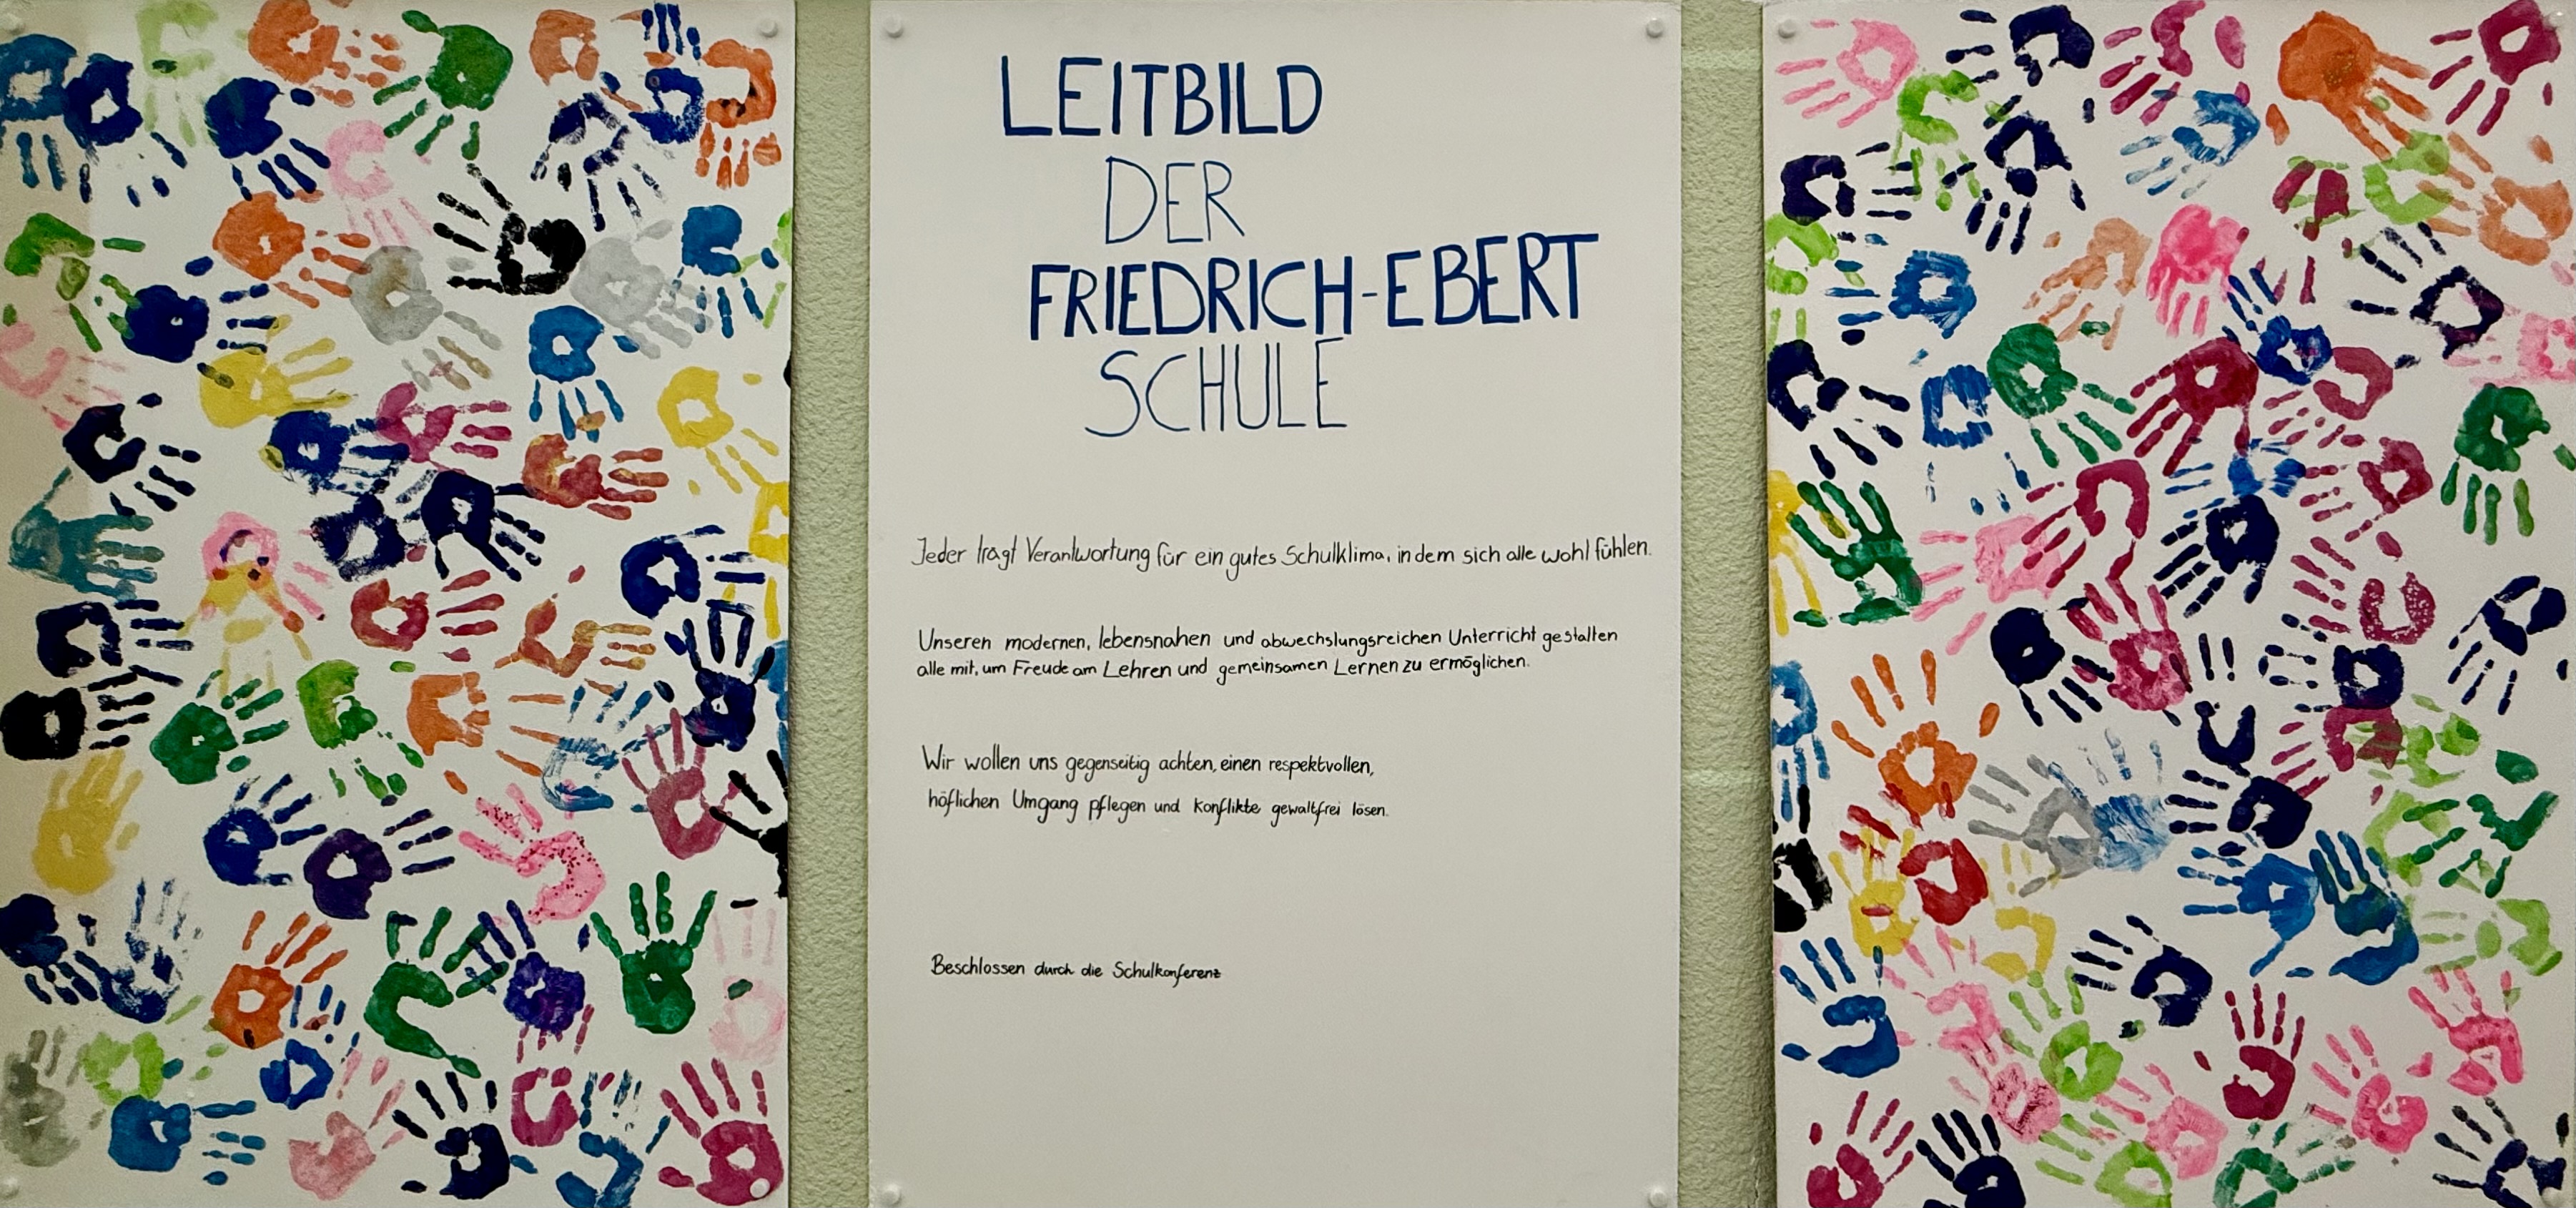 LEITBILD
DER
FRIEDRICH-EBERT
SCHULE
Jeder tragt Verantwortung für ein gutes Schulklima, in dem sich alle wohl fühlen.
Unseren modernen, lebensnahen und abwechslungsreichen Unterricht gestalten
alle mit, um Freude am Lehren und gemeinsamen Lernen zu ermöglichen.
Wir wollen uns gegenseitig achten, einen respektvollen,
höflichen Umgang pflegen und Konflikte gewaltfrei lösen.
Beschlossen durch die Schulkonferenz